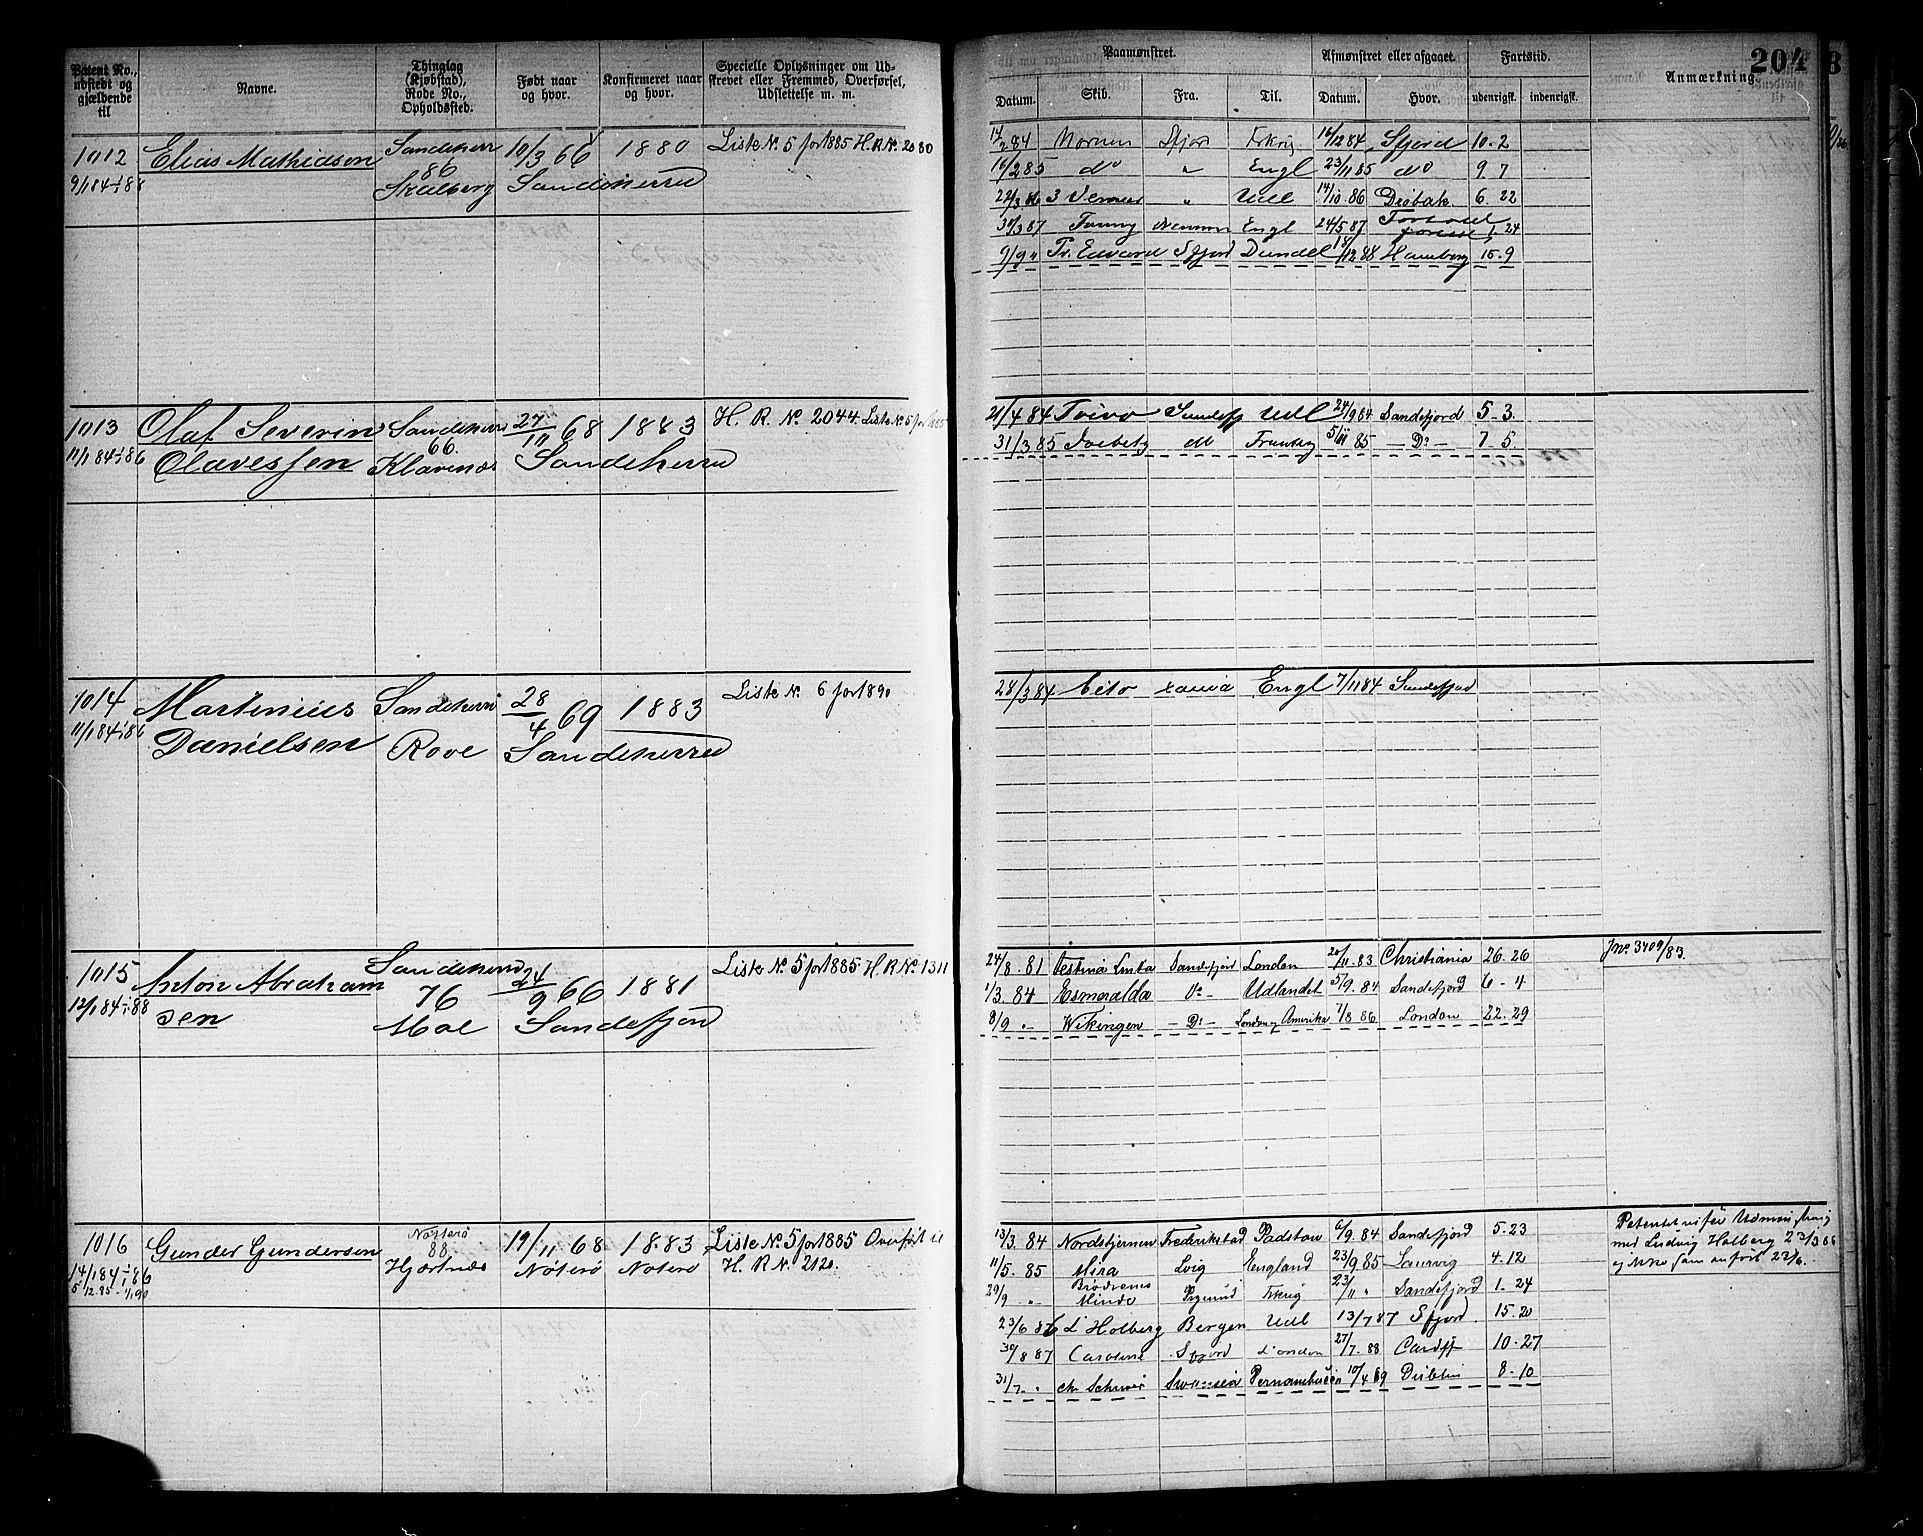 Patent No., udstedt og gjældende til
Navne.
Thinglag (Kjøbstad), Rode No., Opholdssted.
Født naar og hvor.
Konfirmeret naar og hvor.
Specielle Oplysninger om Udskrevet eller Fremmed, Overførsel, Udslettelse m. m.
Paamønstret.
Afmønstret eller afgaaet.
Fartstid.
Anmærkning
204
Datum. Skib. Fra. Til. Datum. Hvor. udenrigsk. indenrigsk.
1012 Elias Mathiasen Sandeherr 10/3 66 1880 Liste No. 5 for 1885 H.R.No. 2080
9/1 84-1/1 88 86
Skalberg Sandeherred
84 Sfjord 16/12 84 Sfjord 10-2
16/2 85 do " Engl 23/11 85 do 9 7
" Udl 14/10 86 Drøbak 6. 22
87 Fanny Engl 24/5 87 1-24
9/9 " Fr. Edvard Sfjord 12 88 Hamborg 15-9
1013 Olaf Severin Sandeherr 27/11 68 1883 H. R. No. 2044. Liste No. 5 for 1885
11/1 84-1/1 86 Olavessen 66.
Klavenæs Sandeherred
21/4 84 Udl 24/9 84 Sandefjord 5-3.
31/3 85 do 85 — Do — 7-5
1014 Martinius Sandeherr 28/4 69 1883 Liste No. 6 for 1890
11/1 84-1/1 86 Danielsen Rove Sandeherred
28/3 84 xania Engl 7/11 84 Sandefjord
1015 Anton Abraham Sandeherred 24/9 66 1881 Liste No. 5 for 1885 H. R. No. 1311
12/1 84-1/1 88 sen 76
Moe Sandefjord
24/8. 81 Sandefjord London 20/11. 83 Christiania 26. 26 Jno. 3409/83.
1/3. 84 Esmeralda Do - Udlandet 5/9. 84 Sandefjord 6-4
8/9 " Wikingen — Do — London Amerika 7/8 86 London 22-29
1016 Gunder Gundersen Nøtterø 19/11 68 1883 Liste No. 5 for 1885 Overført til
14/1 84-1/1 86 88
Hjertnæs Nøterø Nøterø H. R. No. 2120.
5/12. 85-1/1 90
13/3. 84 Nordstjernen Frederikstad Padstow 6/9. 84 Sandefjord 5-23
11/5. 85 Mira Lvig England 23/9 85 Laurvig 4-12
29/9 " Brødrenes Minde Fkrig 23/11 " Sandefjord 1-24
23/6 86 L Holberg Bergen Udl 13/7 87 Sfjord. 15-20
30/8 87 Caroline Sfjord London 27/7. 88 Cardiff 10-27
31/7 " Swansea Pernambuco 10/4 89 Dublin 8-10
med Ludvig Holberg 23/3 86